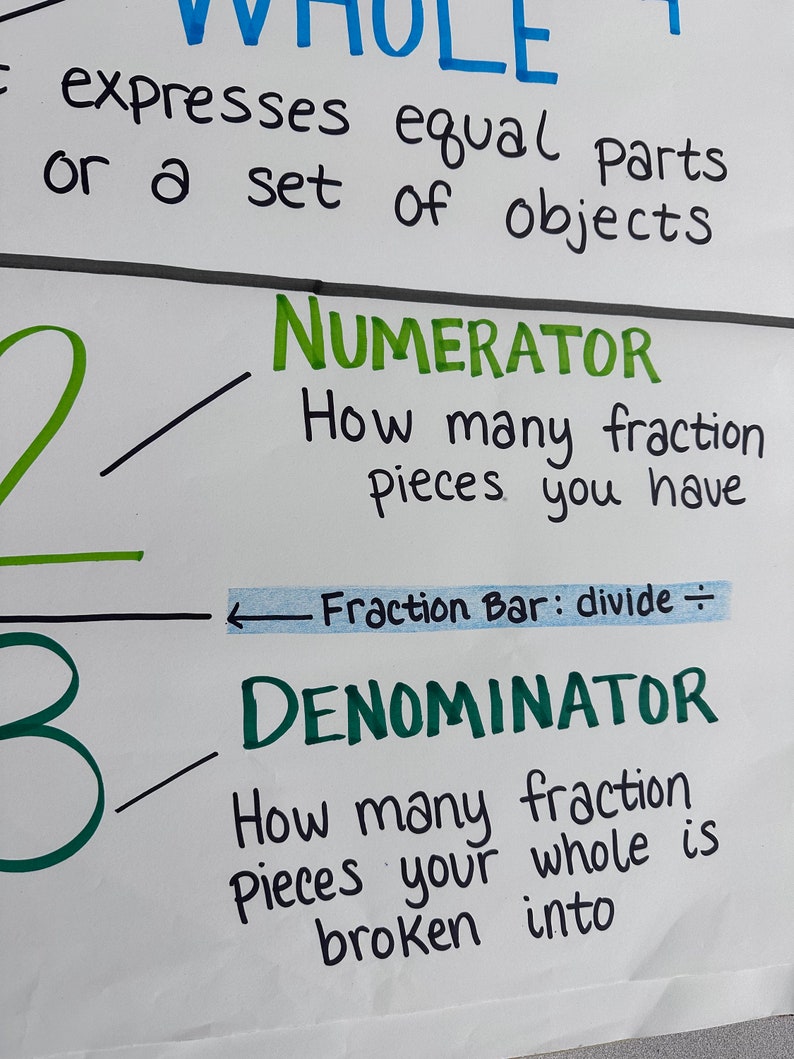 WHOLE
expresses equal parts
or a set of objects
2
NUMERATOR
How many fraction
pieces you have
← Fraction Bar: divide ÷
3
DENOMINATOR
How many fraction
pieces your whole is
broken into